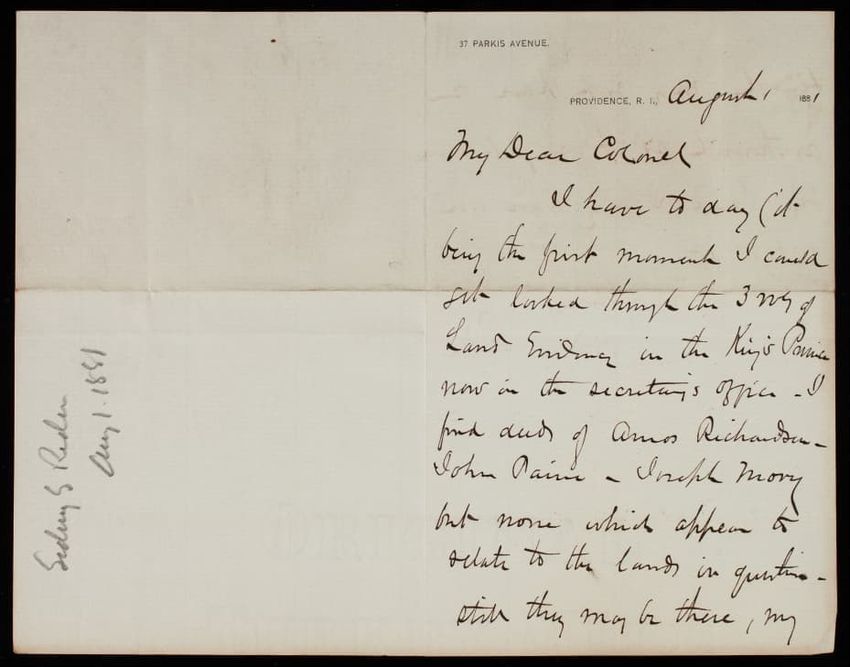 37 PARKIS AVENUE.
PROVIDENCE, R. I., August 1 1881
My Dear Colonel
I have to day (it
being the first moment I could
get looked through the 3 vols of
Land Evidence in the King's Province
now in the secretarys office - I
find deeds of Amos Richardson -
John Paine - Joseph Morey
but none which appear to
relate to the lands in question -
still they may be there, my
Sidney S Rider
Aug 1. 1881